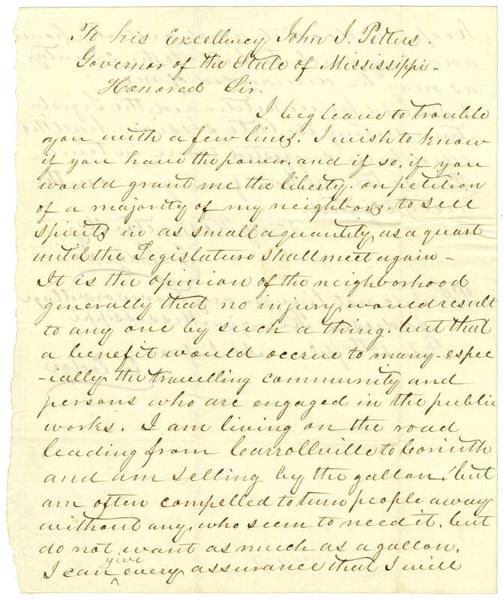 To his Excellency John J. Pettus.
Governor of the State of Mississippi.
Honored Sir.
I beg leave to trouble
you with a few lines. I wish to know
if you have the power, and if so, if you
would grant me the liberty, on petition
of a majority of my neighbors, to sell
spirits in as small a quantity as a quart
until the Legislature shall meet again-
It is the opinion of the neighborhood
generally that no injury would result
to any one by such a thing, but that
a benefit would accrue to many-espec
-ially the travelling community and
persons who are engaged in the public
works. I am living on the road
leading from Carrollville to Corinth
and am selling by the gallon, but
am often compelled to turn people away
without any, who seem to need it, but
do not want as much as a gallon.
I can give every assurance that I will